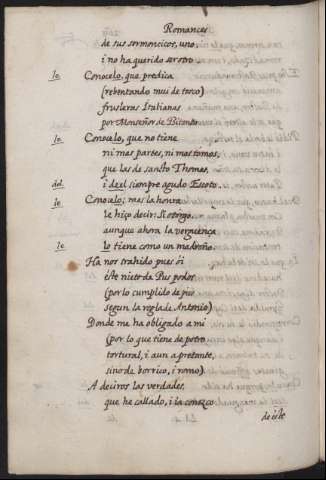 Romances
de sus sermoncicos, uno,
i no ha querido ser otro
le. Conocelo, que predica
(rebentando mui de tosco)
frusleras Italianas
por Monseñor de Bitonto
lo. Conocelo, que no tiene
ni mas partes, ni mas tomos,
que las de sancto Thomas,
del. i de el siempre agudo Escoto.
le. Conocelo; mas la honra
le hiço decir: Si otorgo.
aunque ahora la verguença
le. lo tiene como un madroño.
Ha nos trahido pues oi
este nieto de Pus podos
(por lo cumplido de pies
segun la regla de Antonio)
Donde me ha obligado a mi
(por lo que tiene de potro
tortural, i aun apretante,
sino de borrico, i romo).
A deciros las verdades,
que he callado, i la conozco
de este